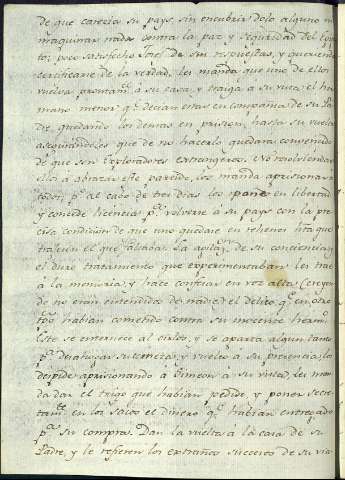 de que carecia su pays, sin encubrir dolo alguno ni
maquinar nada contra la paz y seguridad del
to; poco satisfecho de sus respuestas, y queriendo
certificarse de la verdad, les manda que uno de ellos
vuelva prontam.te á su casa, y traiga a su vista el her
mano menor q.e decian estar en compañia de su Pa
dre, quedando los demas en prision, hasta su vuelta
asegurandoles que de no hacerlo quedara convencido
de que son Exploradores extrangeros. No resolviendose
ellos á abrazar este partido, los manda aprisionar a
todos, p.o al cabo de tres dias los pone en libertad
y concede licencia p.a volverse á su pays con la pre
cisa condicion de que uno quedase en rehenes hta que
trajesen el que faltaba. La de su conciencia y
el duro tratamiento que experimentaban les trae
á la memoria, y hace confesar en voz alta (creyen
do no eran entendidos de nadie) el delito q.e en otro
tpo habian cometido contra su inocente herm.o
Este se enternece al oirlos, y se aparta algun tanto
p.a desahogar su terneza, y vuelto a su presencia, los
despide aprisionando á Simeon á su vista, les man
da dar el trigo que habian pedido, y poner secre
tam.te en los sacos el dinero q.e habian entregado
p.a su compra. Dan la vuelta á la casa de su
Padre, y le refieren los extraños sucesos de su via